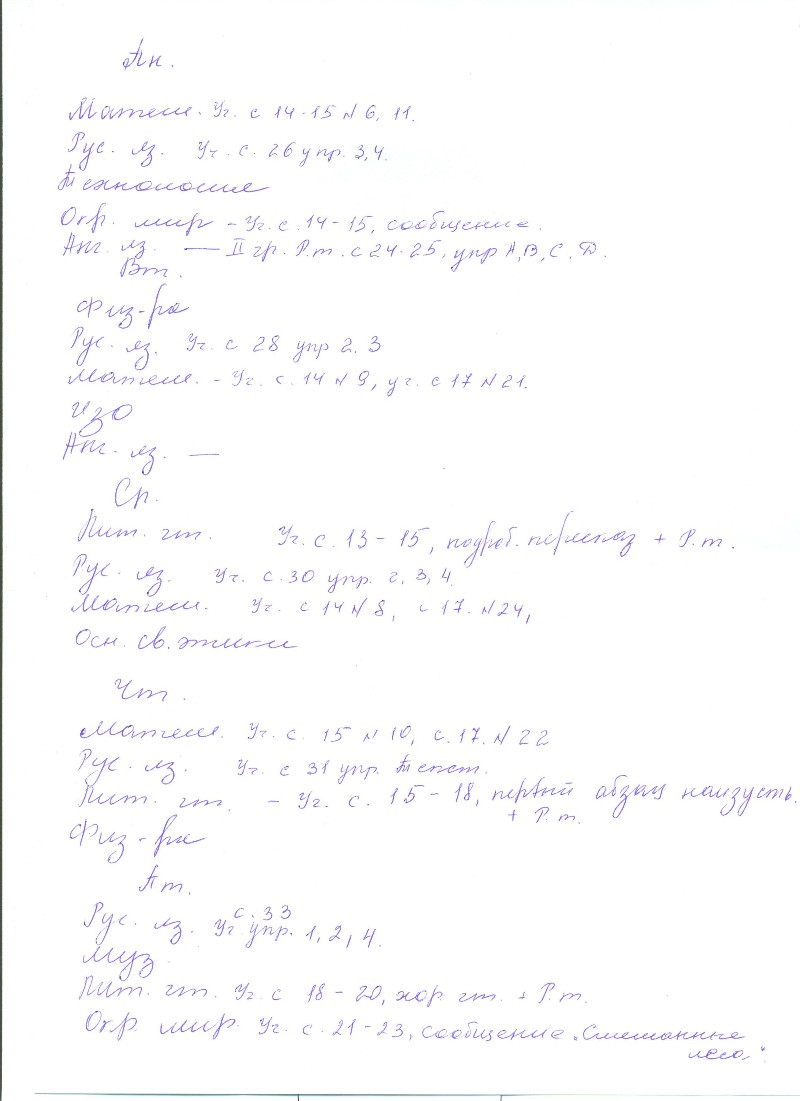 Пн.
Матем. Уч. с 14-15 № 6, 11.
Рус. яз. Уч. с. 26 упр. 3,4.
Технология
Окр. мир - Уч. с. 14-15, сообщение.
Анг. яз. — II гр. Р.т. с 24-25, упр А, В, С, D.
Вт.
Физ-ра
Рус. яз. Уч. с 28 упр 2. 3
Матем. - Уч. с. 14 № 9, уч. с 17 № 21.
ИЗО
Анг. яз. —
Ср.
Лит. чт. Уч. с. 13-15, подроб. пересказ + Р.т.
Рус. яз. Уч. с. 30 упр. 2, 3, 4.
Матем. Уч. с 14 № 8, с 17. № 24,
Осн. св. этики
Чт.
Матем. Уч. с. 15 № 10, с. 17. № 22
Рус. яз. Уч. с 31 упр. Тест.
Лит. чт. - Уч. с. 15-18, первый абзац наизусть.
+ Р.т.
Физ-ра
Пт.
с. 33
Рус. яз. Уч упр. 1, 2, 4.
Муз
Лит. чт. Уч. с 18-20, хор. чт. + Р.т.
Окр. мир. Уч. с. 21-23, сообщение „Смешанные
леса."